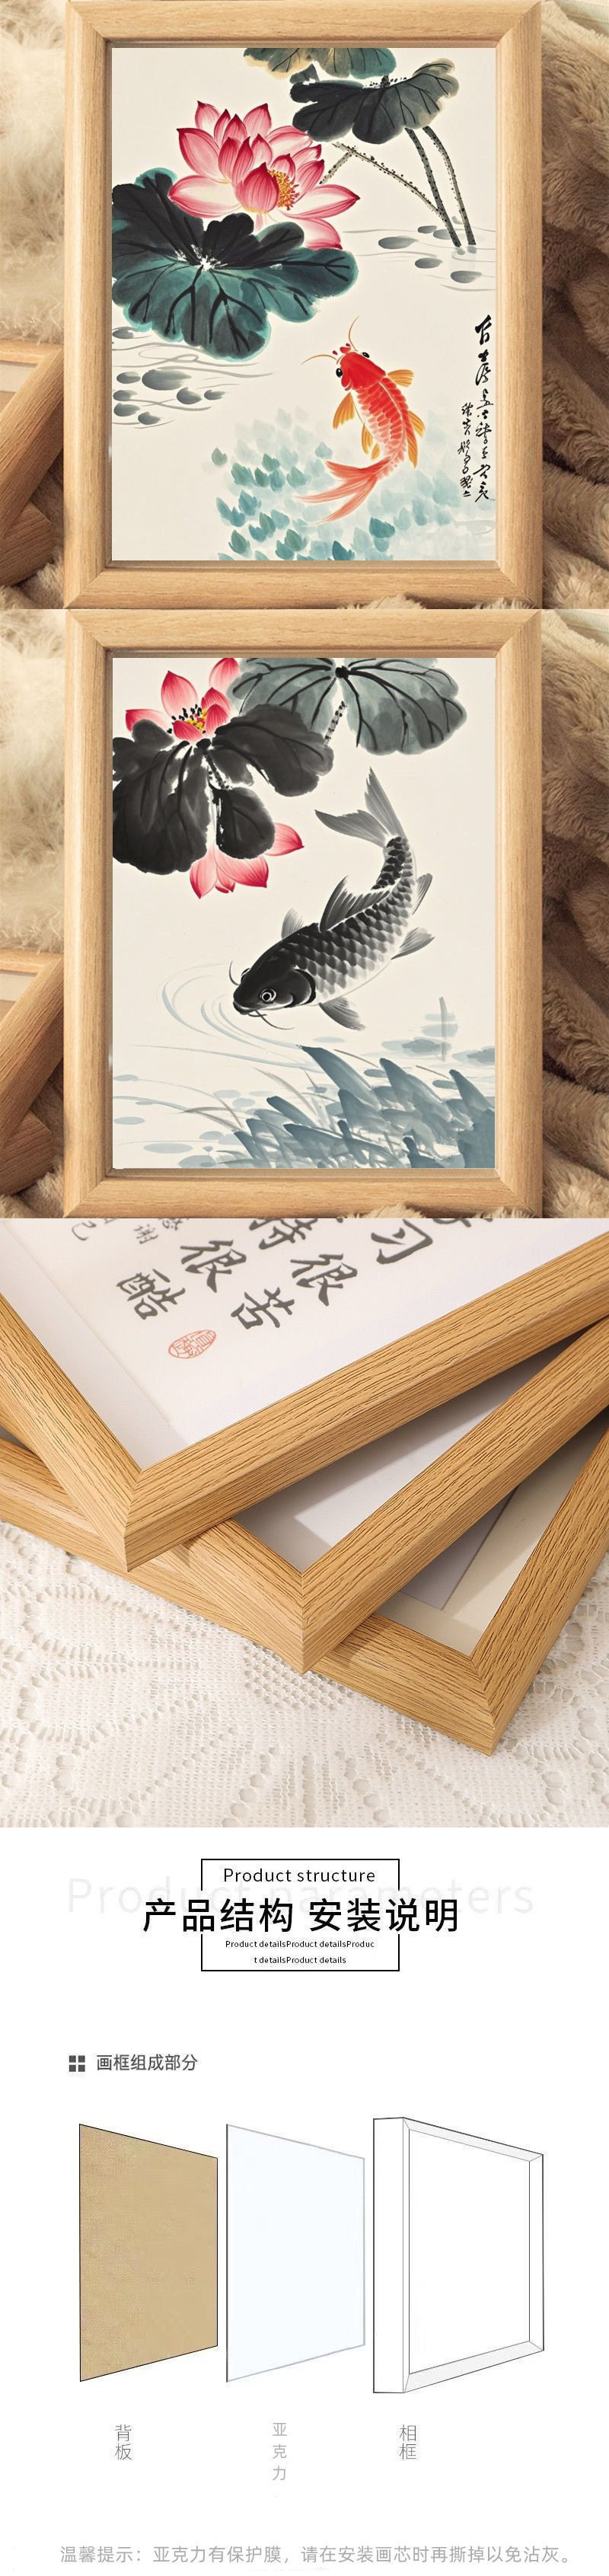 习
待很
很苦
谢
酷
己
Product parameters
Product structure
产品结构 安装说明
Product detailsProduct detailsProduc
t detailsProduct details
画框组成部分
背板
亚克力
相框
温馨提示：亚克力有保护膜，请在安装画芯时再撕掉以免沾灰。